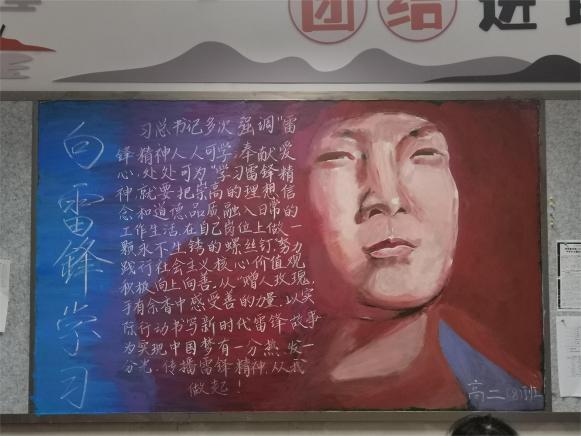 团结进
向雷鋒学习
习总书记多次强调"雷
锋精神人人可学,奉献爱
心,处处可为"学习雷锋精
神,就要把崇高的理想信
念和道德品质融入日常的
工作生活,在自己岗位上做一
颗永不生锈的螺丝钉,努力
践行社会主义核心价值观
积极向上向善。从"赠人玫瑰,
手有余香中感受善的力量,以实
际行动书写新时代雷锋故事
为实现中国梦有一分热,发一
分光,传播雷锋精神,从我
做起!
高二(8)班